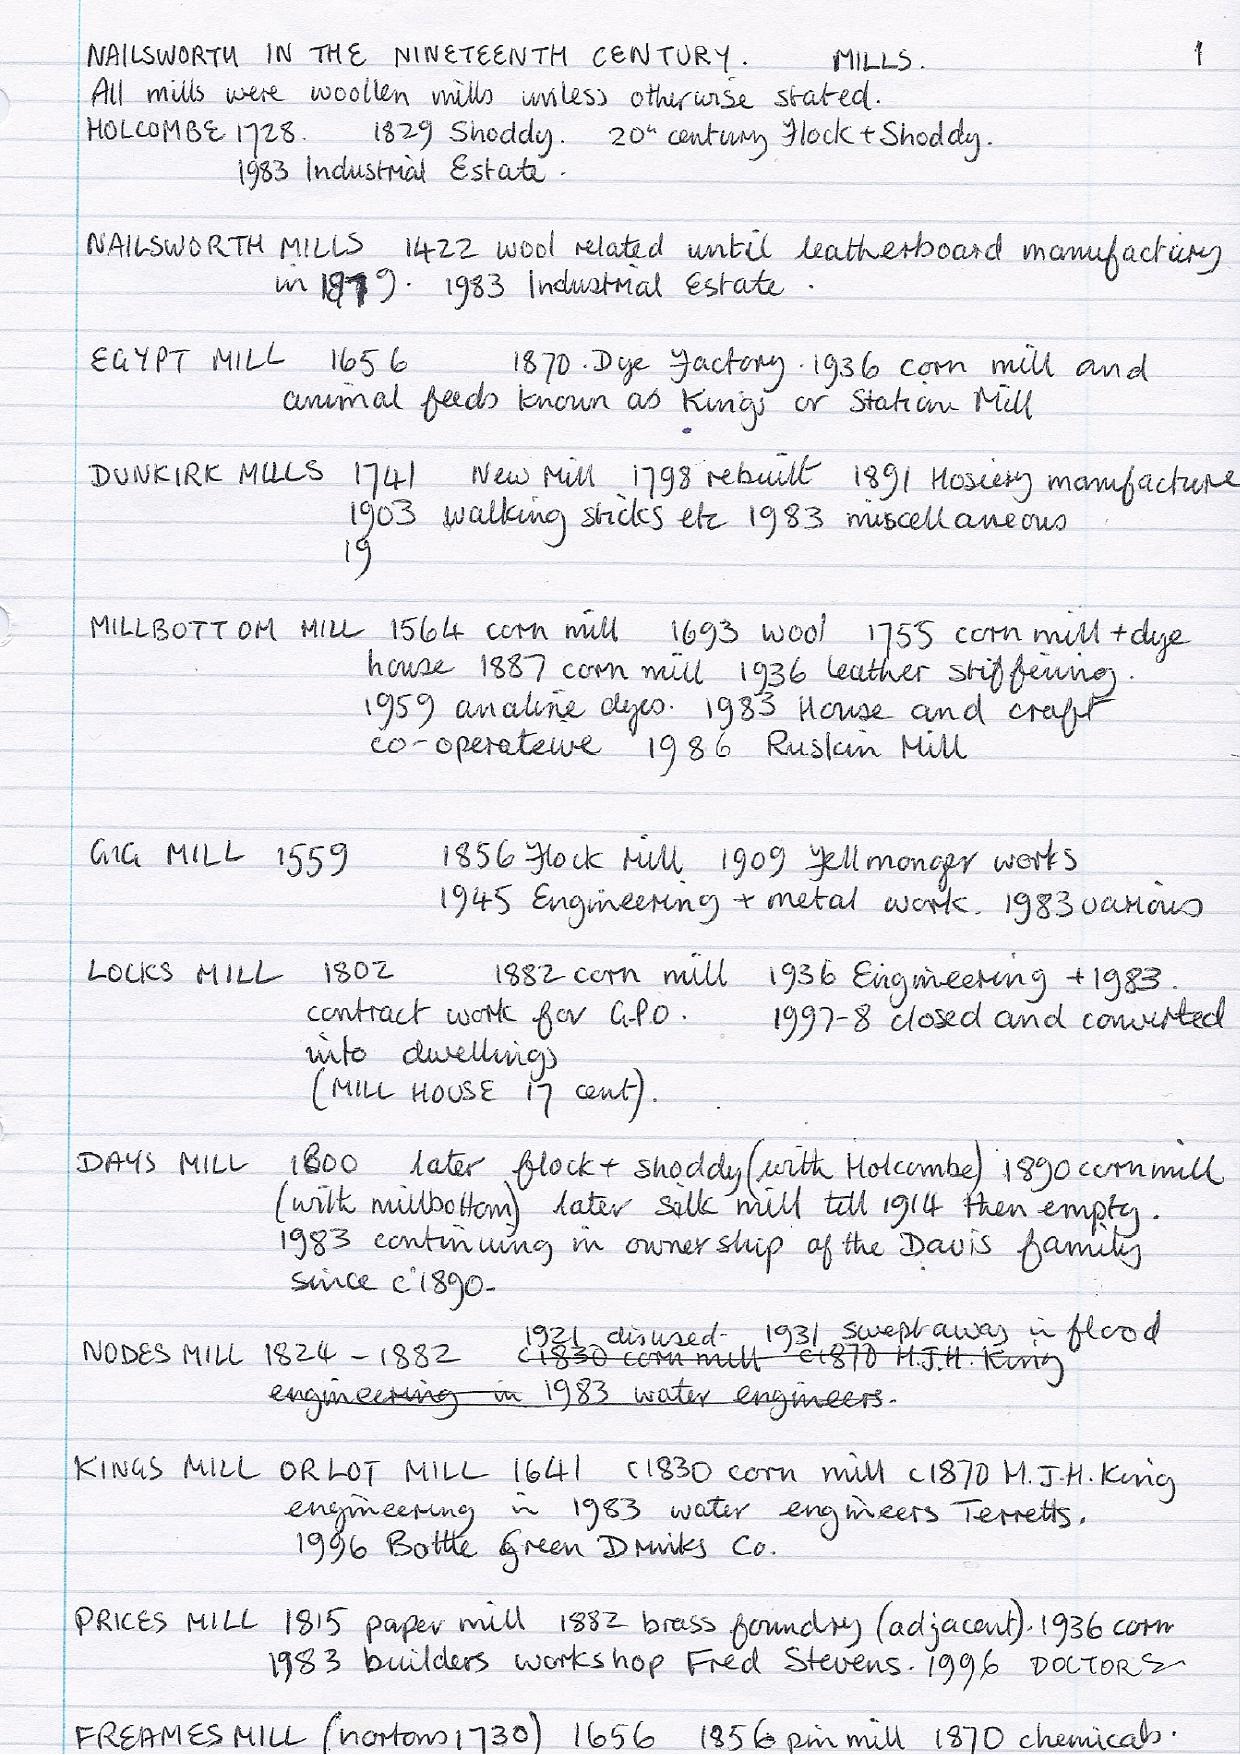 NAILSWORTH IN THE NINETEENTH CENTURY. MILLS. 1
All mills were woollen mills unless otherwise stated.
HOLCOMBE 1728. 1829 Shoddy. 20th century Flock + Shoddy.
1983 Industrial Estate.
NAILSWORTH MILLS 1422 wool related until leatherboard manufactury
in 1879. 1983 Industrial Estate.
EGYPT MILL 1656 1870. Dye Factory. 1936 corn mill and
animal feeds known as Kings or Station Mill
DUNKIRK MILLS 1741 New Mill 1798 rebuilt 1891 Hosiery manufacture
1903 walking sticks etc 1983 miscellaneous
19
MILLBOTTOM MILL 1564 corn mill 1693 wool 1755 corn mill + dye
house 1887 corn mill 1936 leather stiffening.
1959 analine dyes. 1983 House and craft
co-operateive 1986 Ruskin Mill
GIG MILL 1559 1856 Flock Mill 1909 Fellmonger works
1945 Engineering + metal work. 1983 various
LOCKS MILL 1802 1882 corn mill 1936 Engineering + 1983.
contract work for G.P.O. 1997-8 closed and converted
into dwellings
(MILL HOUSE 17 cent).
DAYS MILL 1800 later flock + shoddy (with Holcombe) 1890 corn mill
(with millbottom) later silk mill till 1914 then empty.
1983 continuing in ownership of the Davis family
since c'1890-
1921 disused- 1931 swept away in flood
NODES MILL 1824 - 1882 c1830 corn mill c1870 M.J.H. King
engineering in 1983 water engineers.
KINGS MILL OR LOT MILL 1641 c1830 corn mill c1870 M.J.H. King
engineering in 1983 water engineers Terretts.
1996 Bottle Green Drinks Co.
PRICES MILL 1815 paper mill 1882 brass foundry (adjacent). 1936 corn
1983 builders workshop Fred Stevens. 1996 DOCTORS
FREAMES MILL (nortons 1730) 1656 1856 pin mill 1870 chemicals.